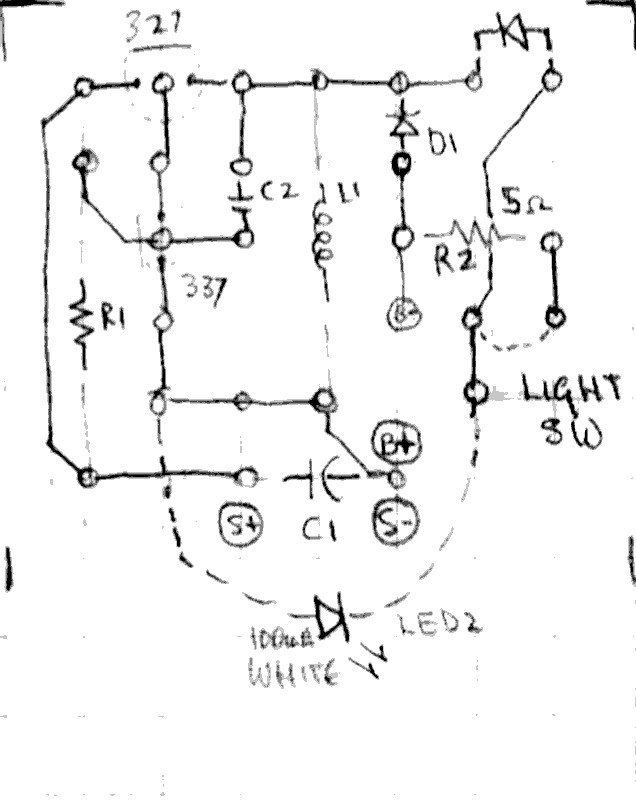 327
D1
C2
L1
5Ω
R2
337
B-
R1
LIGHT
SW
B+
S+
C1
S-
LED2
100mA
WHITE